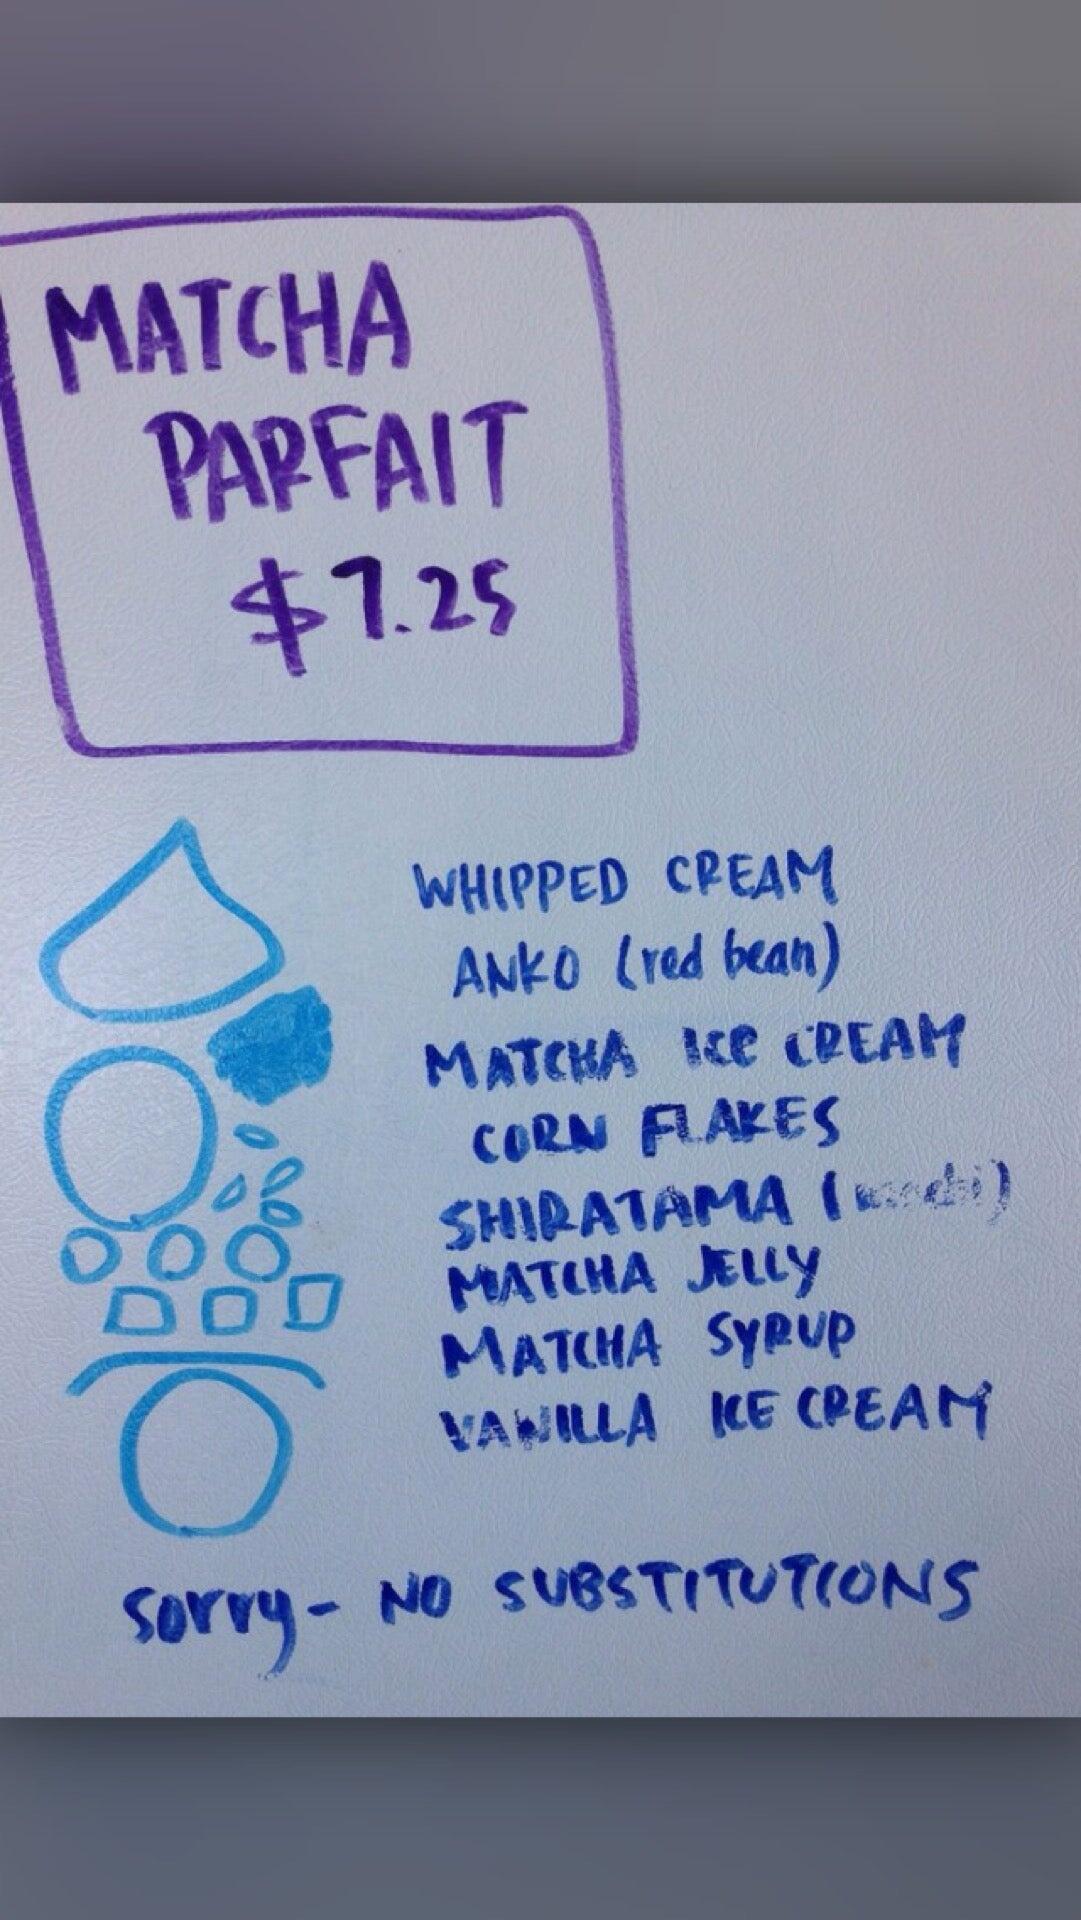 MATCHA
PARFAIT
$7.25
WHIPPED CREAM
ANKO (red bean)
MATCHA ICE CREAM
CORN FLAKES
SHIRATAMA (mochi)
MATCHA JELLY
MATCHA SYRUP
VANILLA ICE CREAM
sorry- NO SUBSTITUTIONS